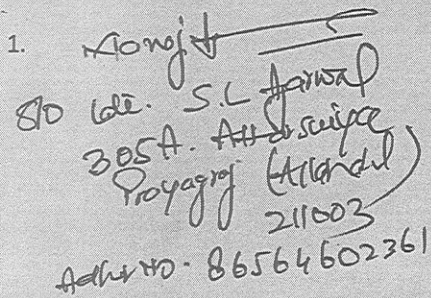 1. Manoj
S/o late. S.L Agarwal
305A. Attarsuiya
Prayagraj (Allahabad)
211003
Adhar No. 86564602361